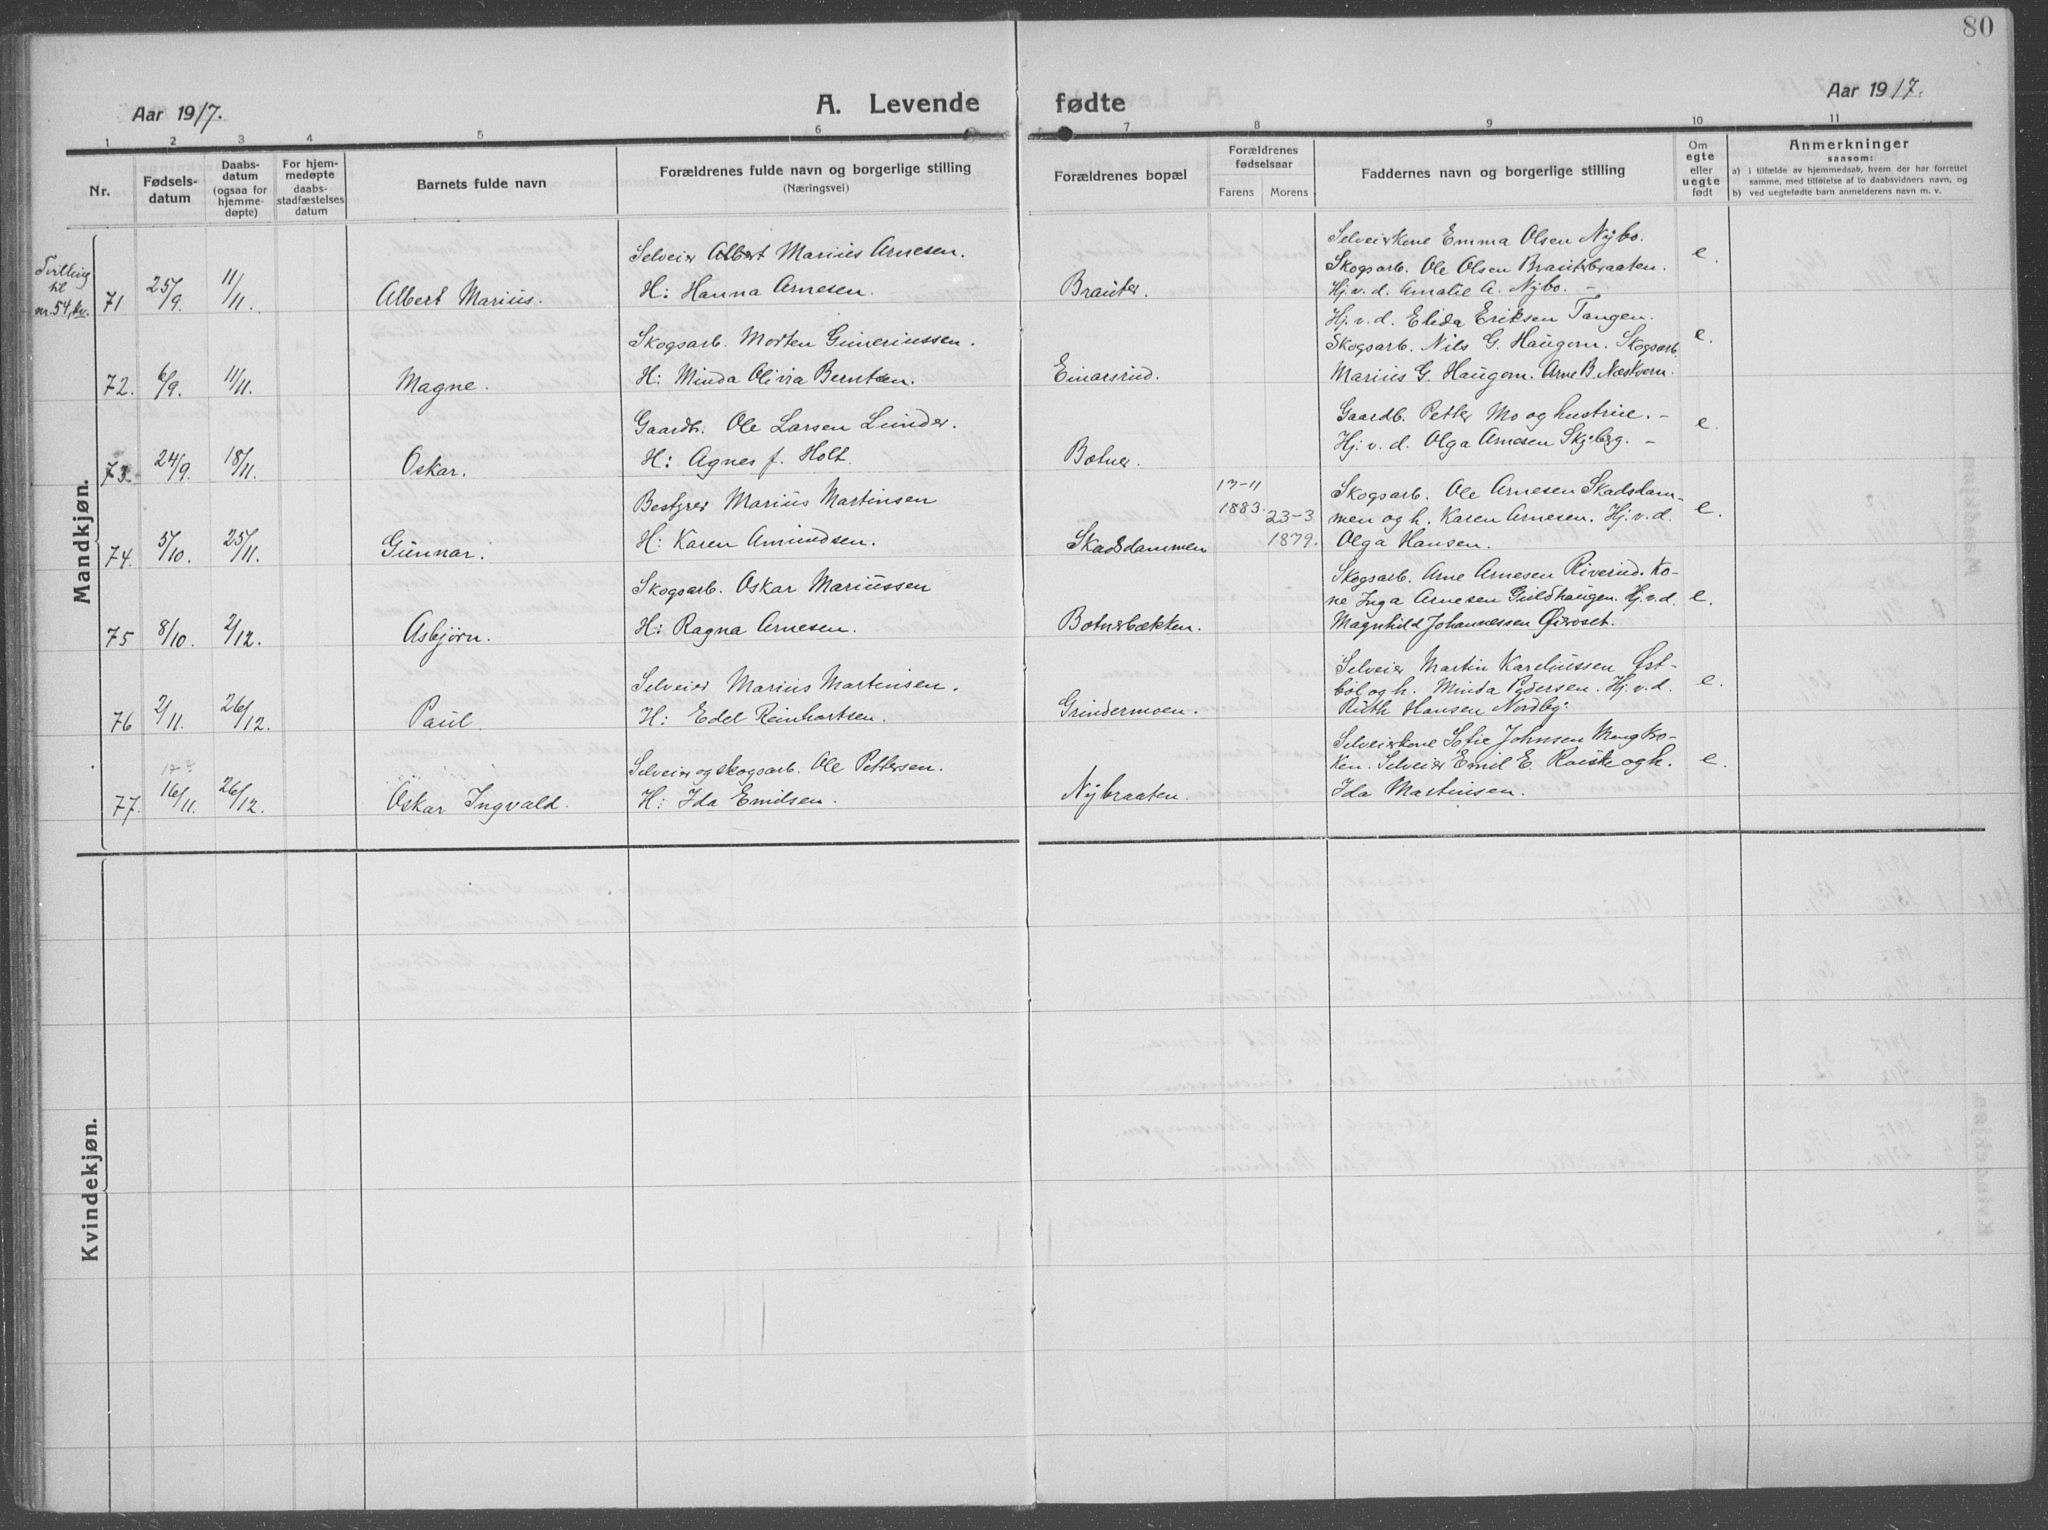 80
Aar 1917.
A. Levende fødte
Aar 1917.
1 2 3 4 5 6 7 8 9 10 11
Nr.
Fødselsdatum
Daabsdatum (ogsaa for hjemmedøpte)
For hjemmedøpte daabsstadfæstelses datum
Barnets fulde navn
Forældrenes fulde navn og borgerlige stilling (Næringsvei)
Forældrenes bopæl
Forældrenes fødselsaar
Farens Morens
Faddernes navn og borgerlige stilling
Om egte eller uegte født
Anmerkninger
saasom:
a) i tilfælde av hjemmedaab, hvem der har forrettet samme, med tilføielse af to daabsvidners navn, og
b) ved uegtefødte barn anmelderens navn m. v.
Mandkjøn.
Tvilling
til
nr. 54, kv.
71 25/9. 11/11. Albert Marius.
Selveier Albert Marius Arnesen.
H: Hanna Arnesen.
Brauter.
Selveierkone Emma Olsen Nybo.
Skogsarb. Ole Olsen Brauterbraaten.
Hj. v. d. Amalie A. Nybo. –
e.
72. 6/9. 11/11. Magne.
Skogsarb. Morten Guneriussen.
H: Minda Olivia Berntsen.
Einarsrud.
Hj. v. d. Elida Eriksen Tangen.
Skogsarb. Nils G. Haugom. Skogsarb.
Marius G. Haugom. Arne B. Næskvern.
e.
73. 24/9. 18/11. Oskar.
Gaardb. Ole Larsen Lunder.
H: Agnes f. Holt.
Botner.
Gaardb. Petter Mo og hustrue. –
Hj. v. d. Olga Arnesen Skjeberg. –
e.
74. 5/10. 25/11. Gunnar.
Bestyrer Marius Martinsen
H: Karen Amundsen.
Skadsdammen
13-11
1883.
23-3
1879.
Skogsarb. Ole Arnesen Skadsdam-
men og h. Karen Arnesen. Hj. v. d.
Olga Hansen.
e.
75 8/10. 2/12. Asbjørn.
Skogsarb. Oskar Mariussen
H: Ragna Arnesen.
Botnerbækken.
Skogsarb. Arne Arnesen Riverud. Ko-
ne Inga Arnesen Guldhaugen. Hj. v. d.
Magnhild Johannessen Øieroset.
e.
76 2/11. 26/12. Paul.
Selveier Marius Martinsen.
H: Edel Reinhartsen.
Grindermoen.
Selveier Martin Karelinssen Øst-
bøl og h. Minda Pedersen. Hj. v. d.
Ruth Hansen Nordby.
e.
77. 16/11. 26/12. Oskar Ingvald.
Selveier og skogsarb. Ole Pettersen.
H: Ida Emilsen.
Nybraaten.
Selveierkone Sofie Johnsen Mengkro-
ken. Selveier Emil E. Roiske og h.
Ida Martinsen.
e.
Kvindekjøn.